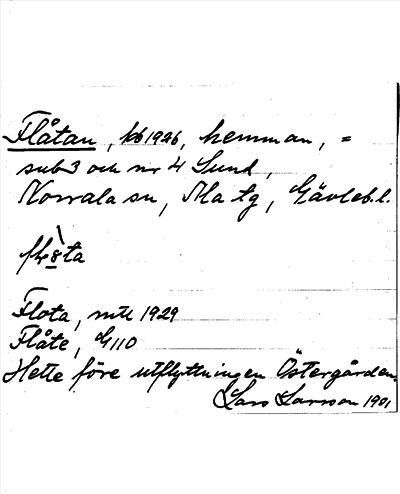 Flåtan, kb 1926, hemman, =
sub 3 och nr 4 Sund,
Norrala sn, Ma tg, Gävleb. l.
Flota, mtl 1929
Flåte, G110
Hette före utflyttningen Östergården.
Lars Larsson 1901